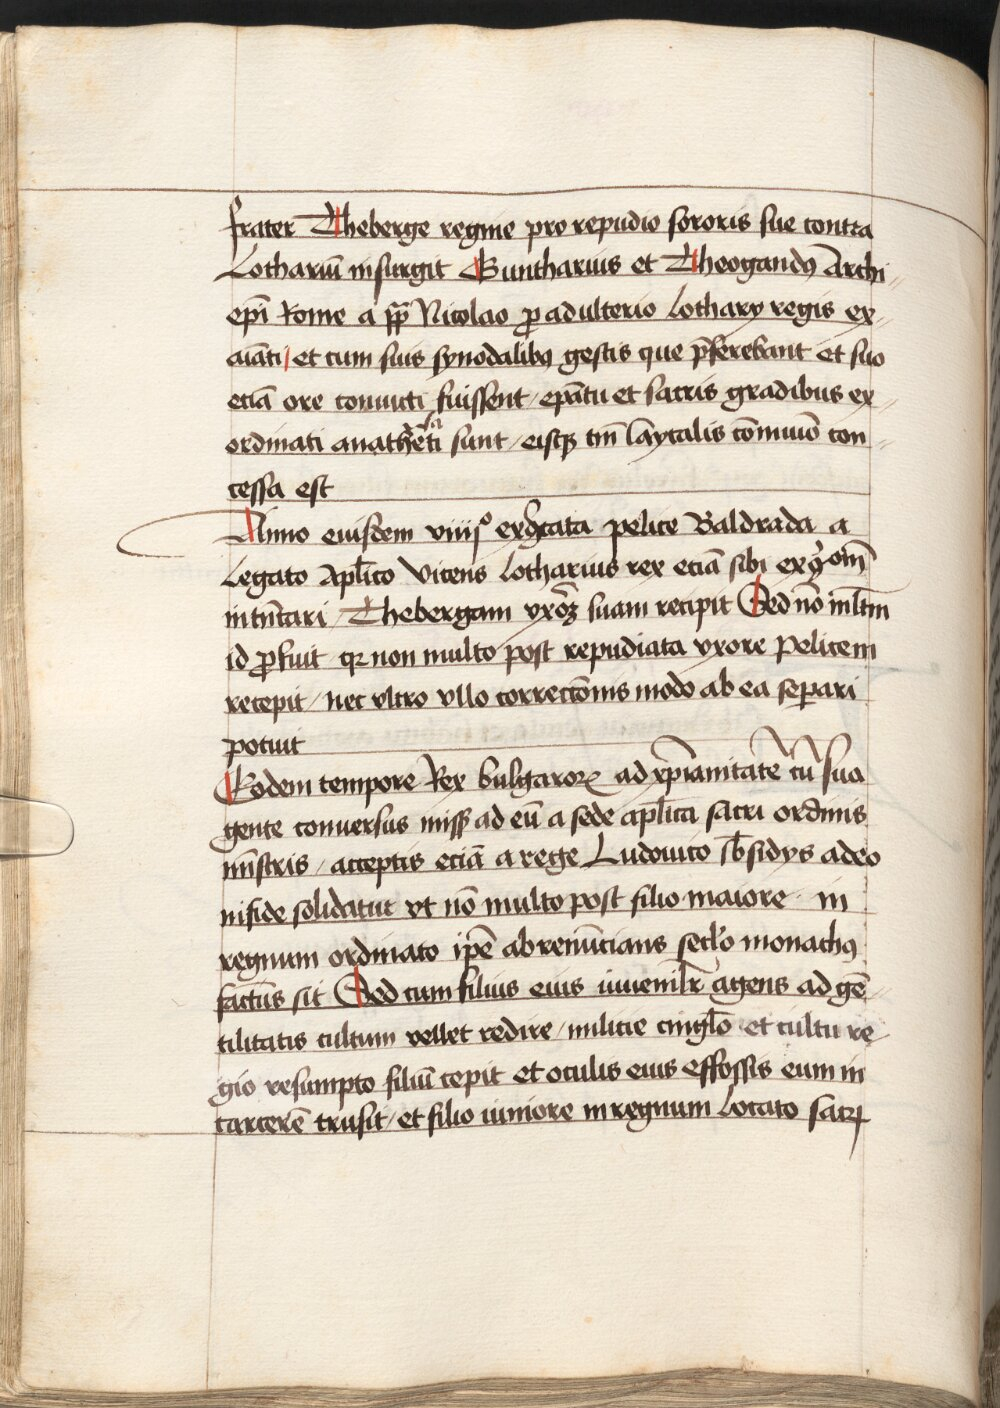 frater Theberge regine pro repudio sororis sue contra
Lothariū insurgit Guntharius et Theogandꝯ Archi
epī Rome a pp̄ Nicolao ꝓ adulterio Lothary regis ex
aūati et cum suis synodalibꝯ gestis que p̄ferebant et suo
eciā ore conuicti fuissent / epātu et sacris gradibus ex
ordinati anathēti sunt / eisqꝫ tm̄ laycalis cōmuō con
cessa est
Anno eiusdem viiijº pelice Baldrada a
Legato Aplīco Vicens Lotharius rex eciā sibi
/ Thebergam vxorē suam recipit Sed nō mltm̄
id ꝓfuit qꝛ non multo post repudiata vxore Pelicem
recepit / nec vltro vllo correctōnis modo ab ea separi
potuit
Eodem tempore Rex bulgaroꝝ ad xp̄ianitatē cū sua
gente conuersus missꝭ ad eū a sede aplīca sacri ordinis
mīstris / acceptis eciā a rege Ludouico sb̄sidys adeo
in fide solidatur vt nō multo post filio maiore in
regnum ordinato ip̄e abrenūcians sclo monachꝯ
factus sit Sed cum filius eius iuuenilr̄ agens ad gē
tilitatis cultum vellet redire / milicie cinglō et cultu re
gio resumpto filiū cepit et oculis eius effossis eum in
carcerē trusit / et filio iuniore in regnum locato sacꝝ